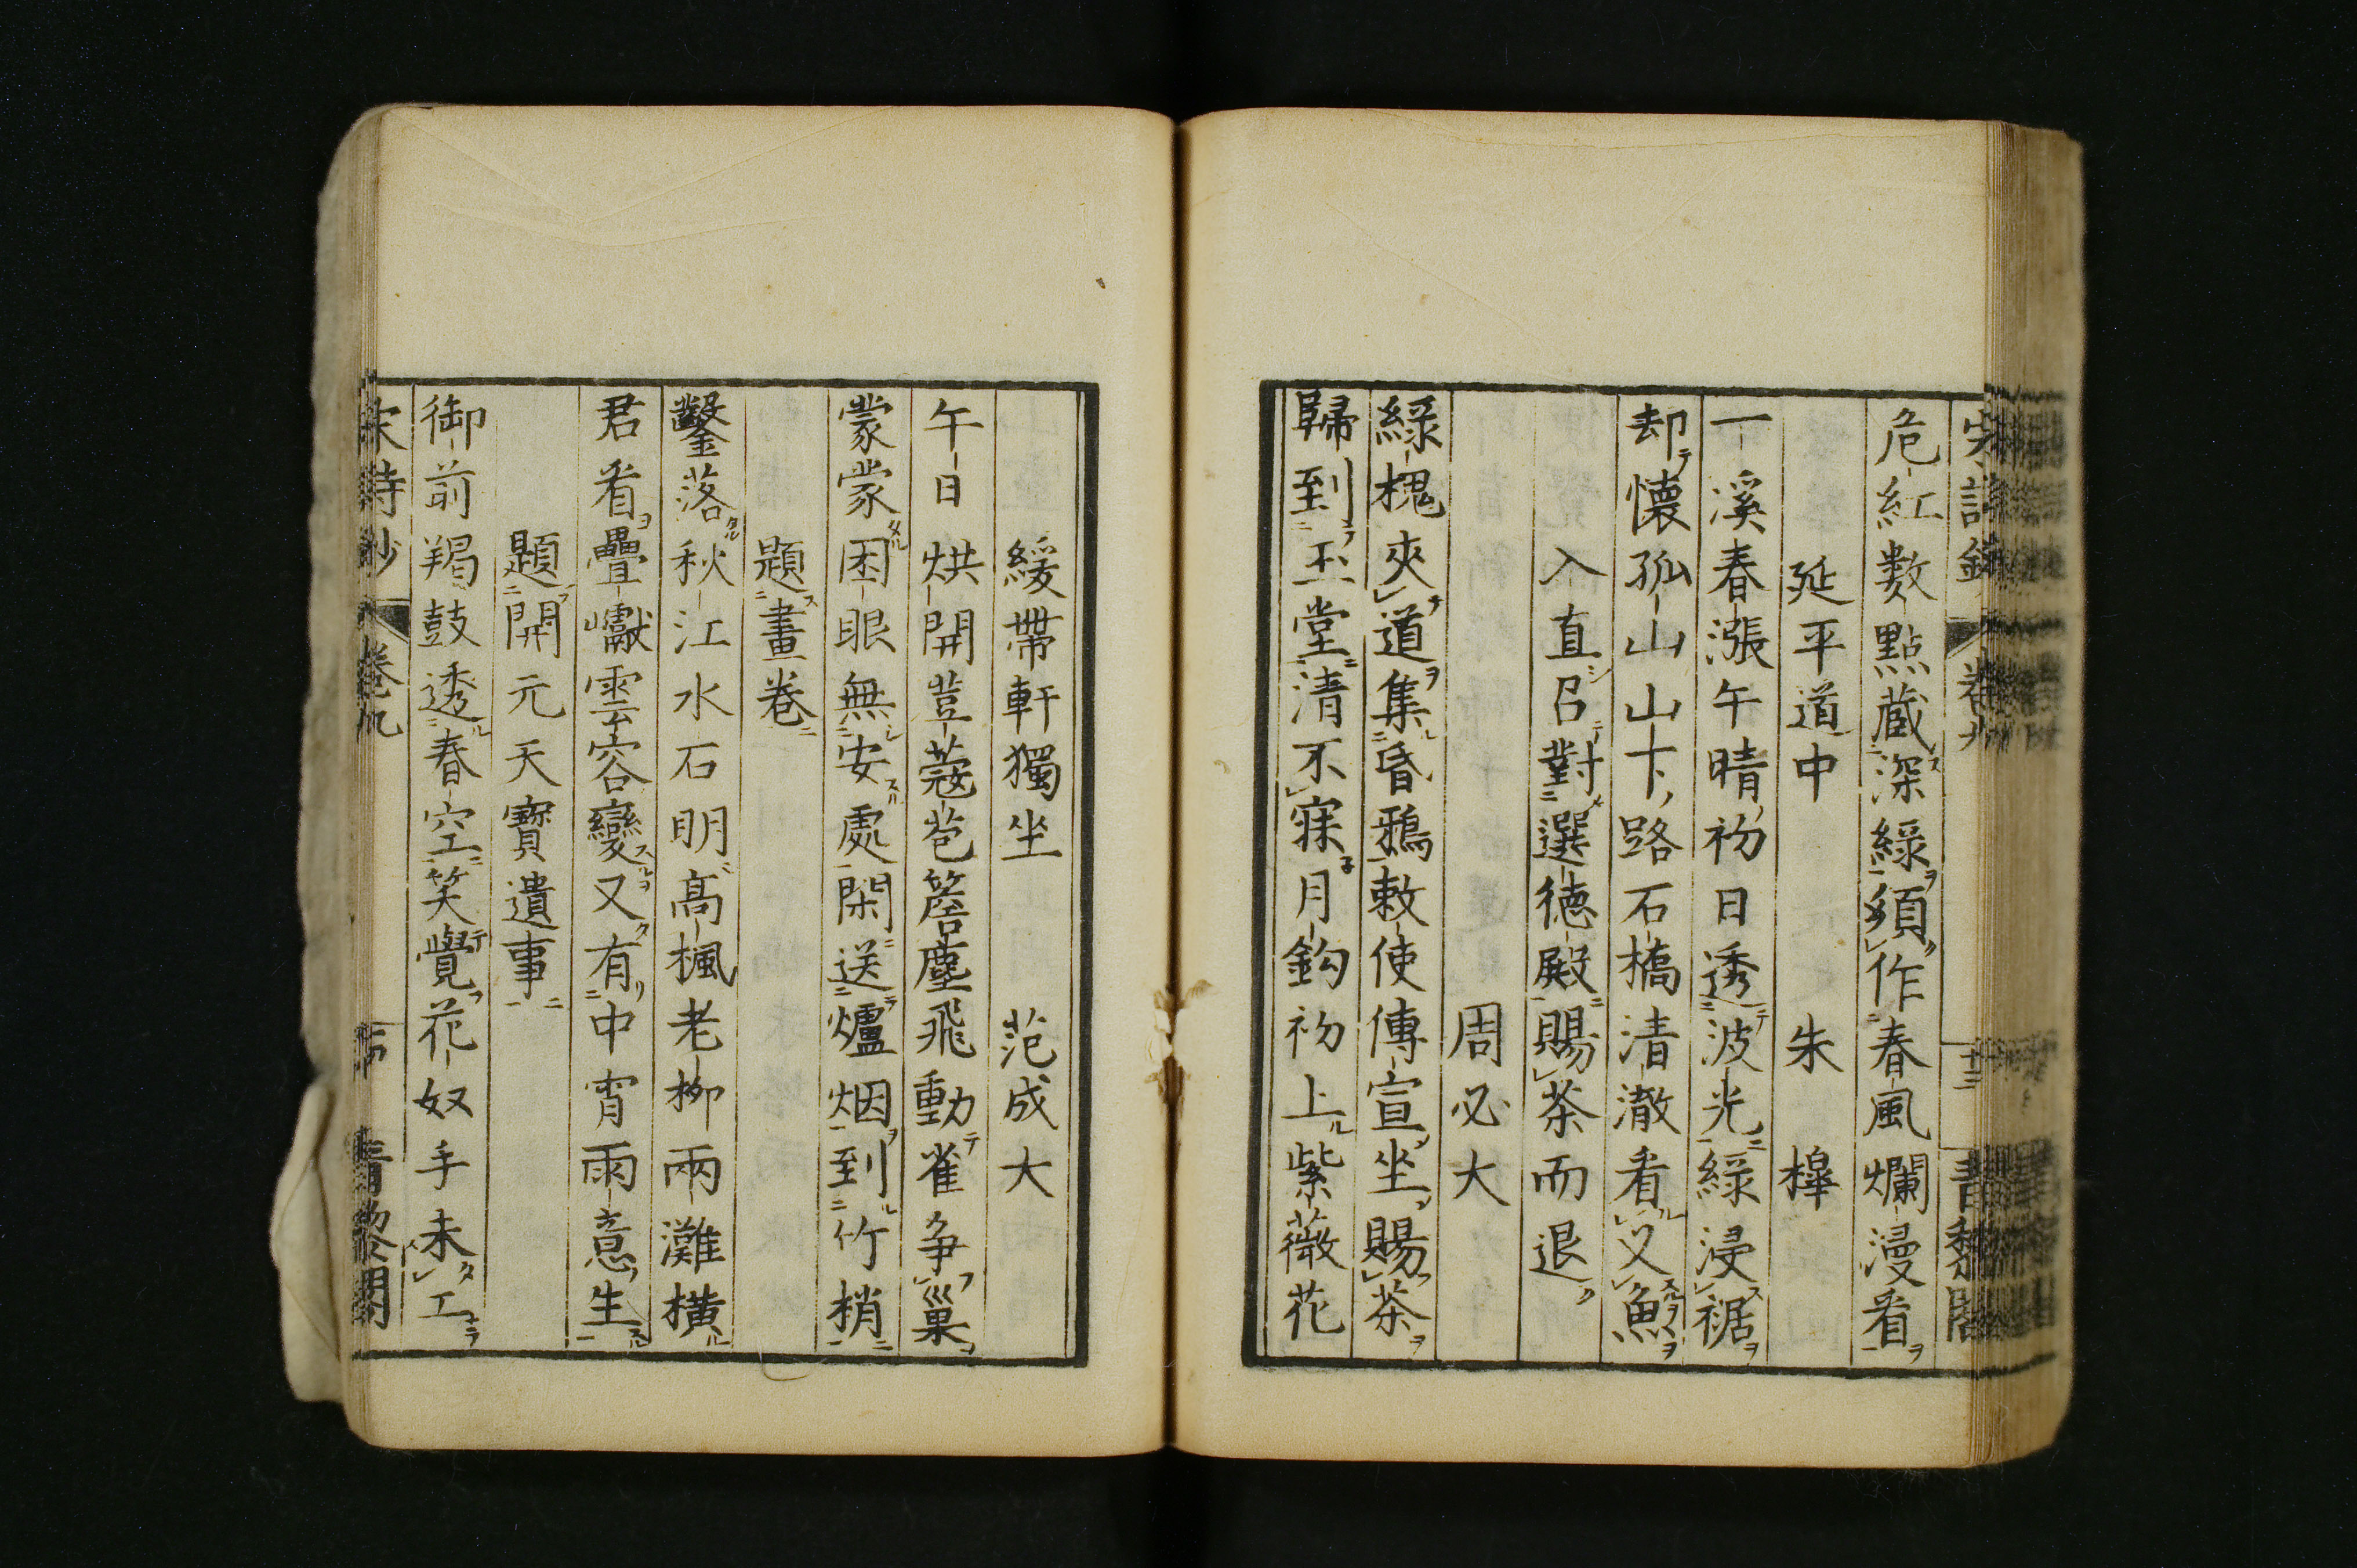 危紅數點藏深綠須作春風爛漫看
延平道中 朱 槔
一溪春漲午晴初日透波光綠浸裾
却懷孤山山下路石橋清澈看叉魚
入直召對選德殿賜茶而退
周必大
綠槐夾道集昏鴉敕使傳宣坐賜茶
歸到玉堂清不寐月鈎初上紫薇花
緩帶軒獨坐 范成大
午日烘開荳蔻苞簷塵飛動雀争巢
蒙蒙困眼無安處閑送爐烟到竹梢
題畫卷
鑿落秋江水石明高楓老柳兩灘橫
君看疊巘雲容變又有中宵雨意生
題開元天寶遺事
御前羯鼓透春空笑覺花奴手未工
宋詩鈔 卷九